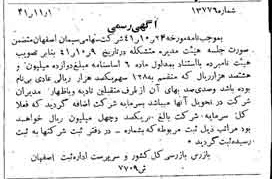 شماره ۱۳۷۷۹ ۴۱/۱۱/۱
آگهی رسمی
بموجب نامه مورخه ۲۴/۱۰/۴۱ شرکت سهامی سیمان اصفهان متضمن
صورت جلسه هیئت مدیره متشکله در تاریخ ۹/۱۰/۴۱ بنابر تصویب
هیئت نامبرده باستناد مدلول ماده ۶ اساسنامه مبلغ دوازده میلیون و
هشتصد هزار ریال که منقسم به ۱۲۸ سهم یکصد هزار ریالی عادی بی نام
بوده باشد وصدی صد بهای آن از طرف متقبلین تادیه و باظهار مدیران
شرکت در تحویل آنها میباشد بسرمایه شرکت اضافه گردید که فعلا
کل سرمایه شرکت بالغ بر یکصد و چهل میلیون ریال خواهد
بود مراتب ذیل ثبت مربوطه که شماره - در دفتر ثبت شرکتها به ثبت
رسیده ثبت گردید
بازرس بازرسی کل کشور و سرپرست اداره ثبت اصفهان
ش ۷۷۰۹